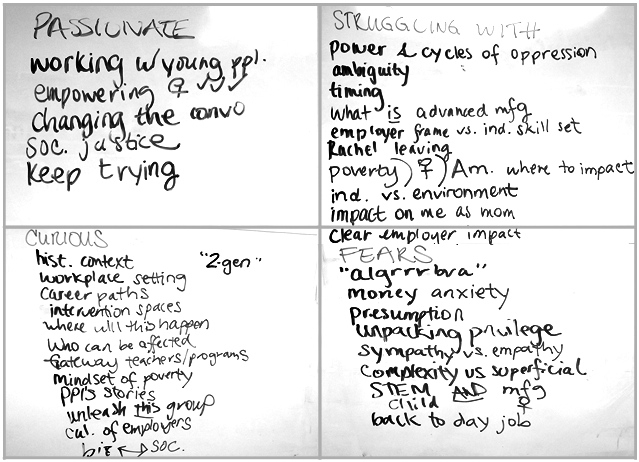 PASSIONATE
working w/ young ppl.
empowering ♀ ✓✓✓
changing the convo
soc. justice
keep trying
STRUGGLING WITH
power & cycles of oppression
ambiguity
timing
what is advanced mfg
employer frame vs. ind. skill set
Rachel leaving
poverty) ♀ ) Am. where to impact
ind. vs. environment
impact on me as mom
clear employer impact
CURIOUS
hist. context "2-gen"
workplace setting
career paths
intervention spaces
where will this happen
who can be affected
Gateway teachers/programs
mindset of poverty
ppl's stories
unleash this group
cul. of employers
biz ↔ soc.
FEARS
"algrrrbra"
money anxiety
presumption
unpacking privilege
sympathy vs. empathy
complexity vs superficial
STEM AND mfg
child ♀
back to day job